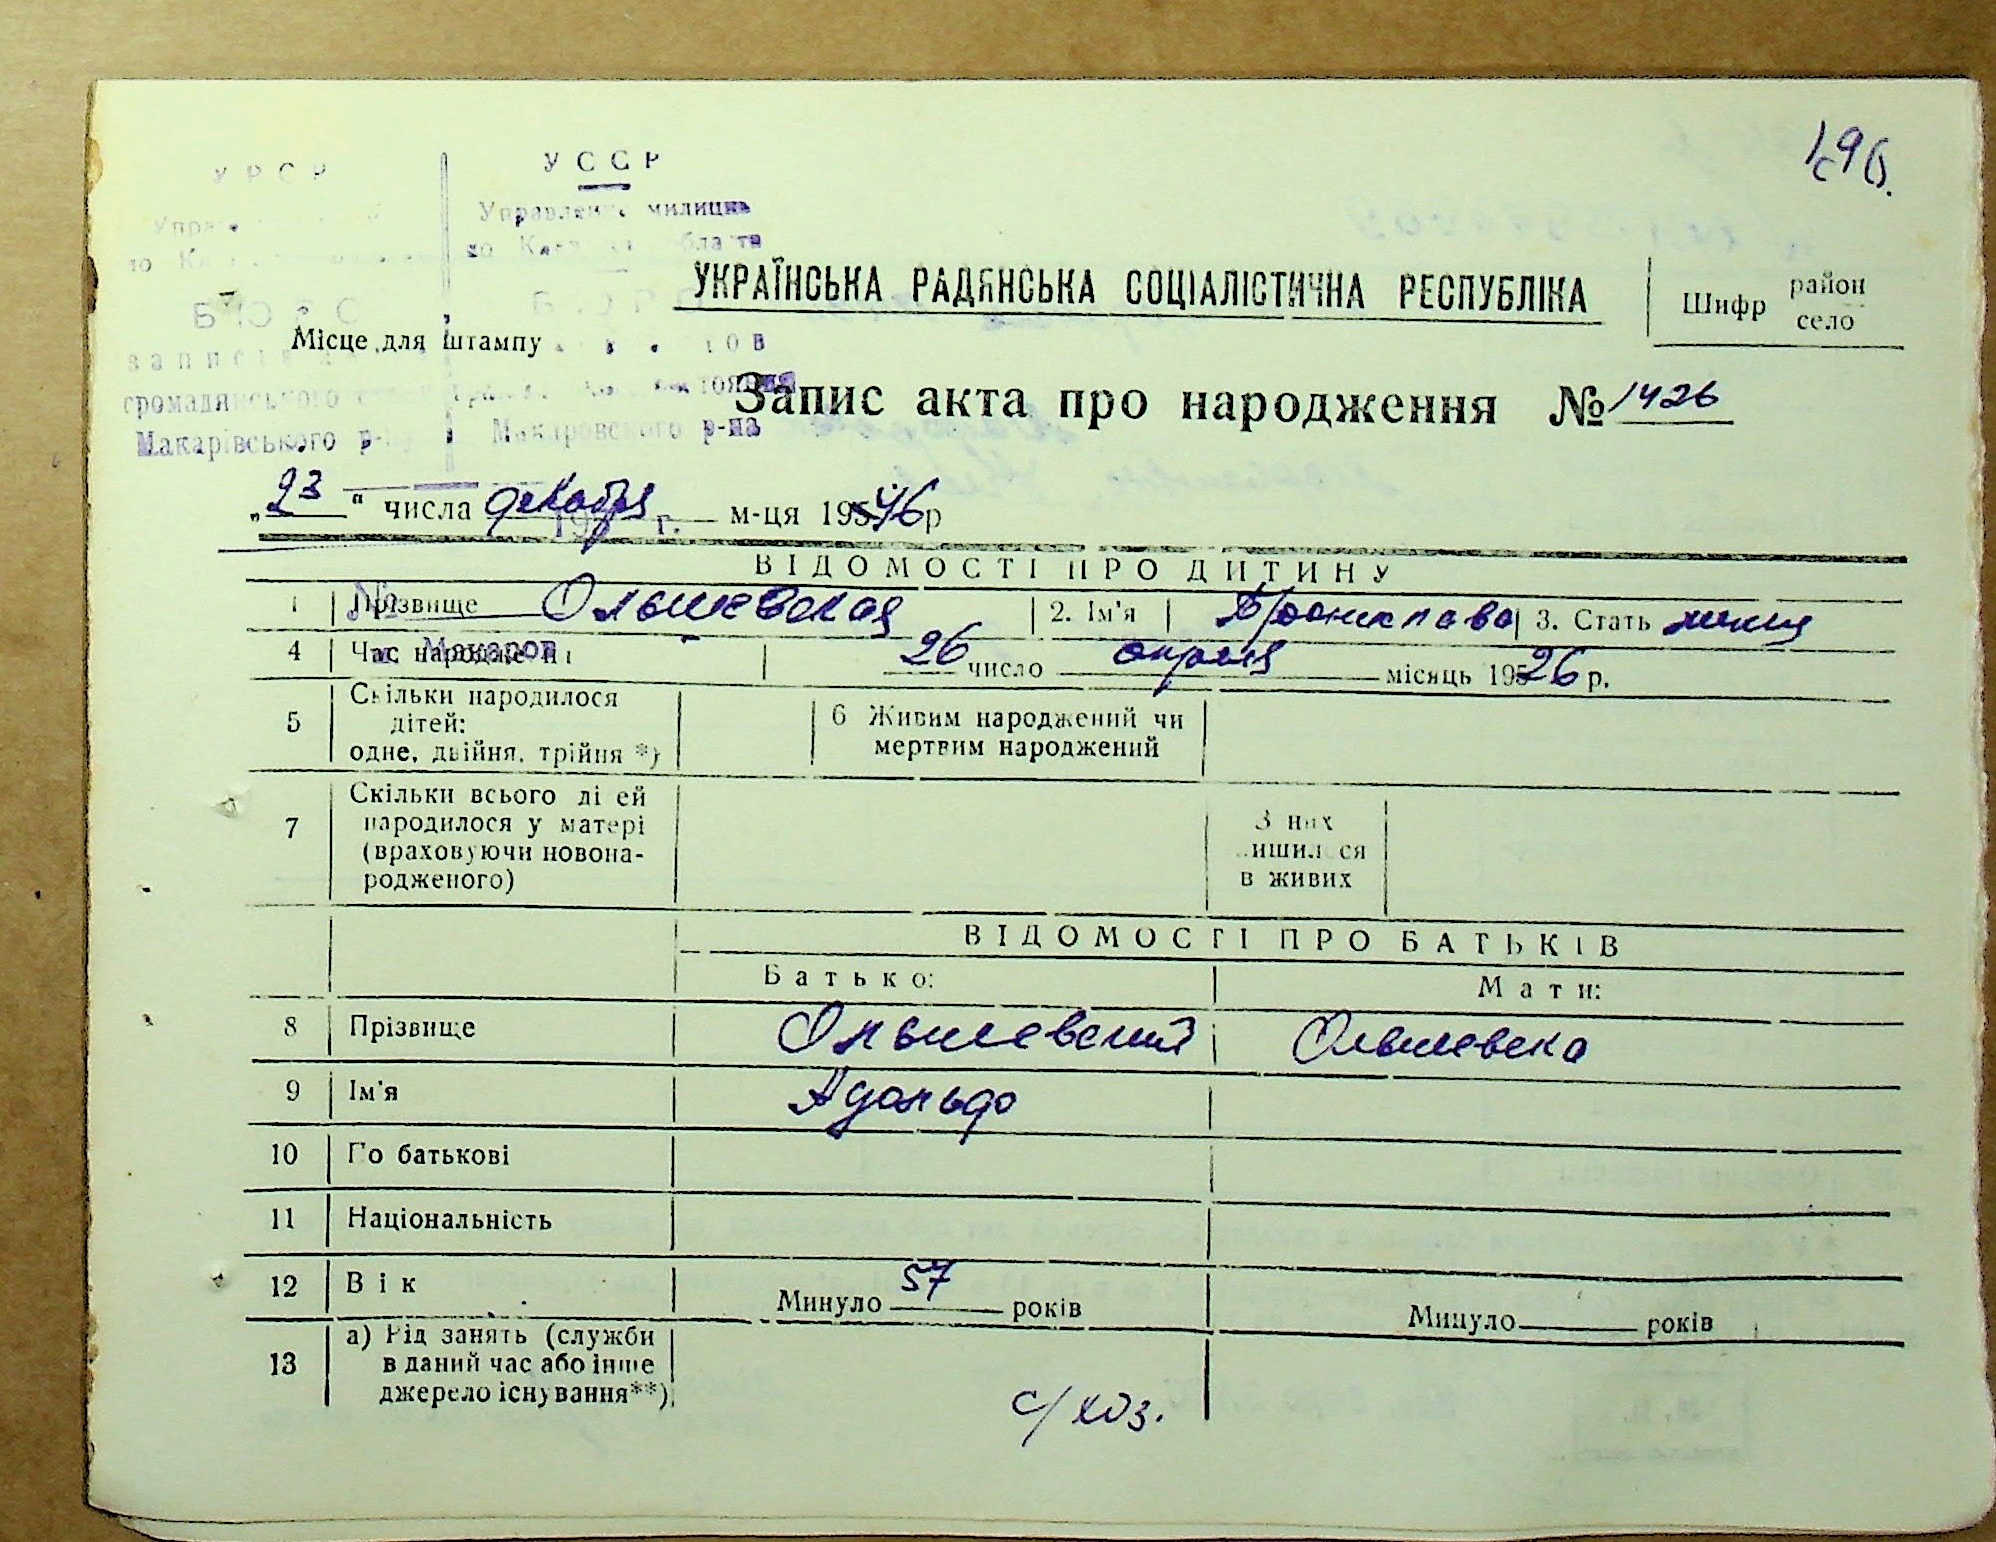 196.
УРСР
УССР
Управлен милиции
по К области
УКРАЇНСЬКА РАДЯНСЬКА СОЦІАЛІСТИЧНА РЕСПУБЛІКА
Шифр район
село
Місце для штампу
громадянського
Макарівського р-ну Макаровского р-на
Запис акта про народження № 1426
„23“ числа декабря м-ця 1946р
ВІДОМОСТІ ПРО ДИТИНУ
1 Прізвище Ольшевская 2. Ім'я Бронислава 3. Стать женщ
4 Час народження 26 число апреля місяць 1926 р.
м. Макаров
5 Скільки народилося
дітей:
одне, двійня, трійня *)
6 Живим народжений чи
мертвим народжений
7 Скільки всього дітей
народилося у матері
(враховуючи новона-
родженого)
З них
лишилося
в живих
ВІДОМОСТІ ПРО БАТЬКІВ
Батько: Мати:
8 Прізвище Ольшевский Ольшевска
9 Ім'я Адольф
10 По батькові
11 Національність
12 Вік Минуло 57 років Минуло років
13 а) Рід занять (служби
в даний час або інше
джерело існування**)
с/хоз.